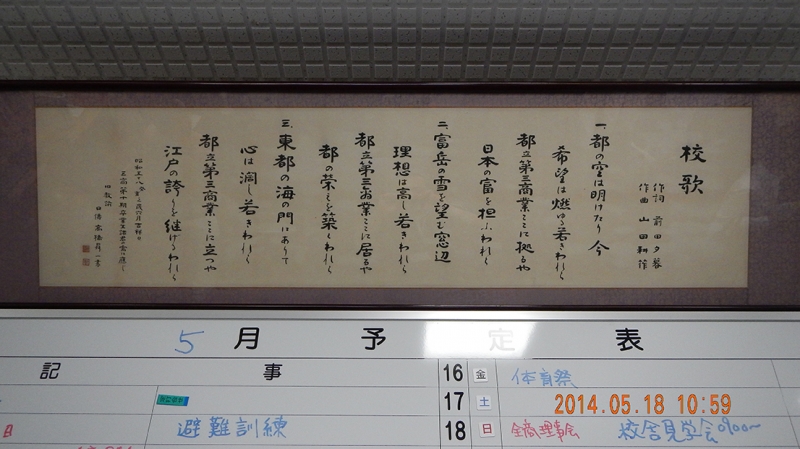 校歌
作詞 前田夕暮
作曲 山田耕筰
一、都の空は明けたり 今
希望は燃ゆる若きわれら
都立第三商業ここに拠るや
日本の富を担ふわれら
二、富岳の雪を望む窓辺
理想は高し若きわれら
都立第三商業ここに居るや
都の栄えを築くわれら
三、東都の海の門にありて
心は潤し若きわれら
都立第三商業ここに立つや
江戸の誇りを継げるわれら
5月予定表
記事
16 金 体育祭
17 土
避難訓練
18 日 全商理事会 校舎見学会 9:00~
日
2014.05.18 10:59